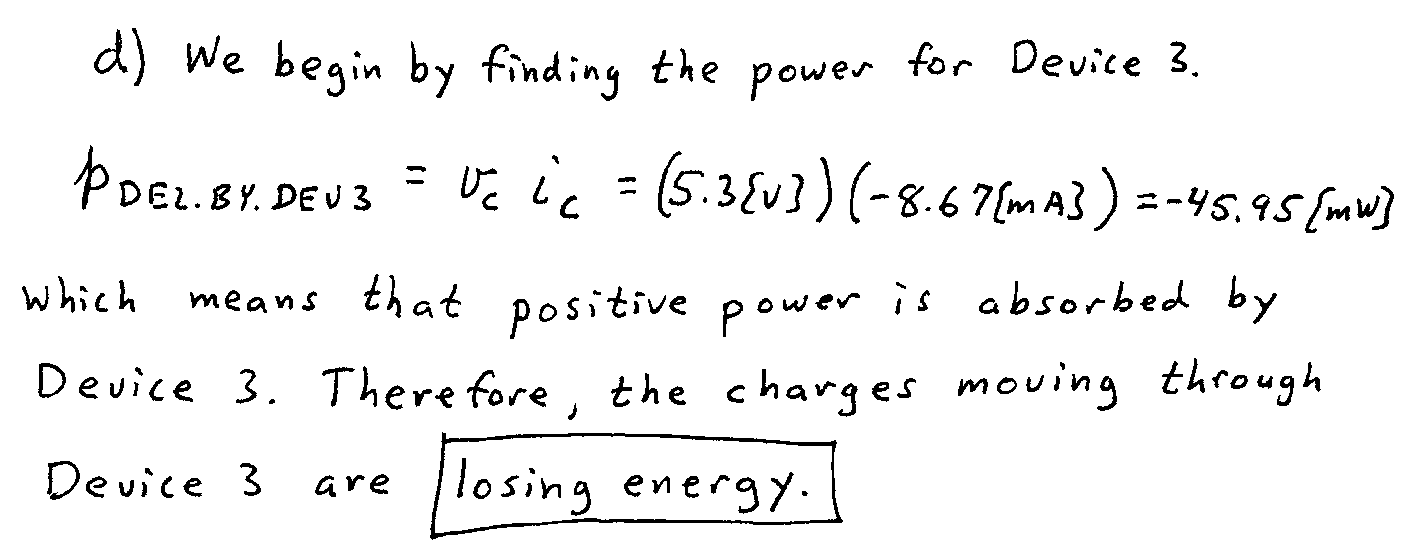 d) We begin by finding the power for Device 3.
p DEL.BY.DEV3 = v_c i_c = (5.3[V])(-8.67[mA]) = -45.95[mW]
which means that positive power is absorbed by
Device 3. Therefore, the charges moving through
Device 3 are losing energy.